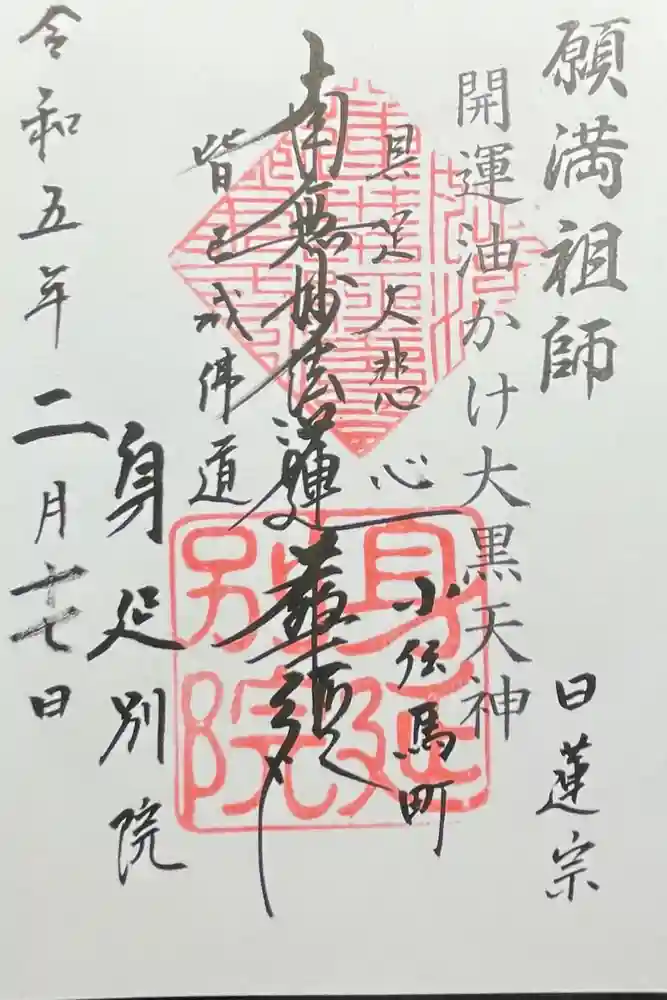 願満祖師
日蓮宗
開運油かけ大黒天神
小伝馬町
具足大悲心
南無妙法蓮華経
皆已成佛道
身延別院
令和五年二月十七日
身延
別院